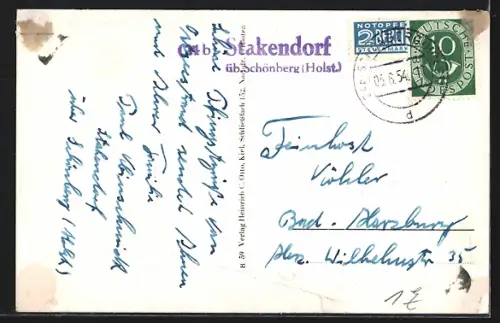 24b Stakendorf
üb. Schönberg (Holst.)
NOTOPFER
2 BERLIN
STEUERMARKE
DEUTSCHE BUNDESPOST
10
05.6.54
d
Liebe Pfingstgrüße vom
Ostseestrand sendet Ihnen
und Ihrer Familie
Paul
Stakendorf
über Schönberg (Holst)
H 59 Verlag Heinrich C. Otto, Kiel, Schließfach 152
Feinkost
Köhler
Bad-Harzburg
Hrz. Wilhelmstr 35